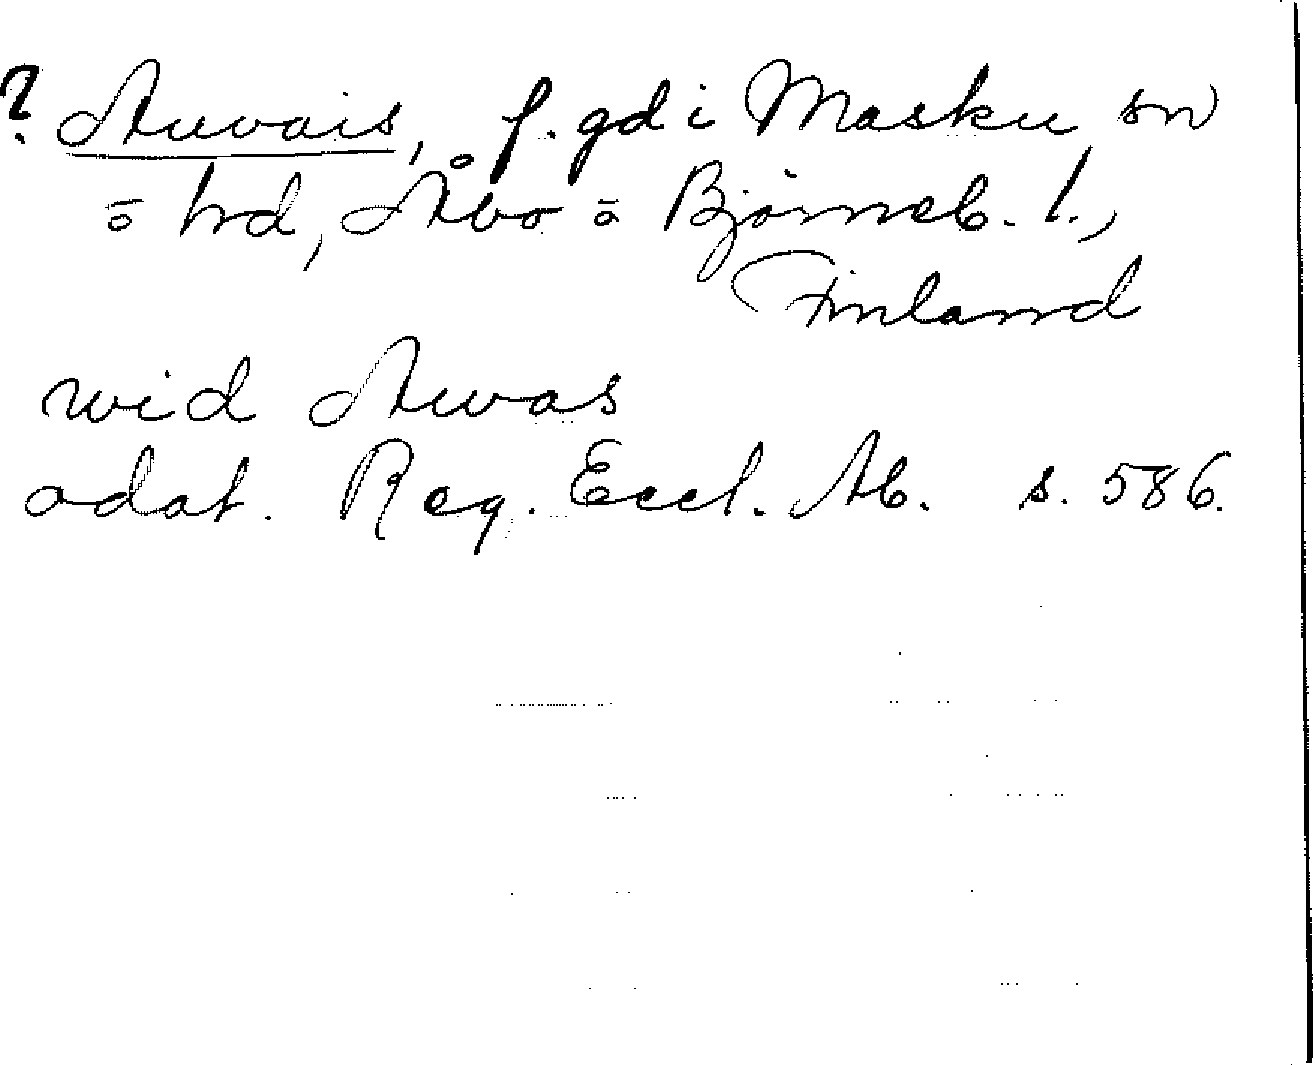 ? Auvais, f. gd i Masku sn
o hd, Åbo o Björneb. l.,
Finland
wid Auvas
odat. Reg. Eccl. Ab. s. 586.